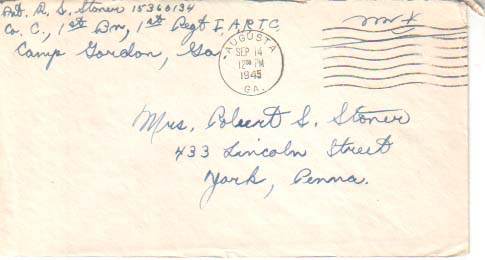 Pvt. R. S. Stoner 15360134
Co. C, 1st Bn, 1st Regt I.A.R.T.C
Camp Gordon, Ga
Free
AUGUSTA
SEP 14
12 PM
1945
GA.
Mrs. Robert S. Stoner
433 Lincoln Street
York, Penna.